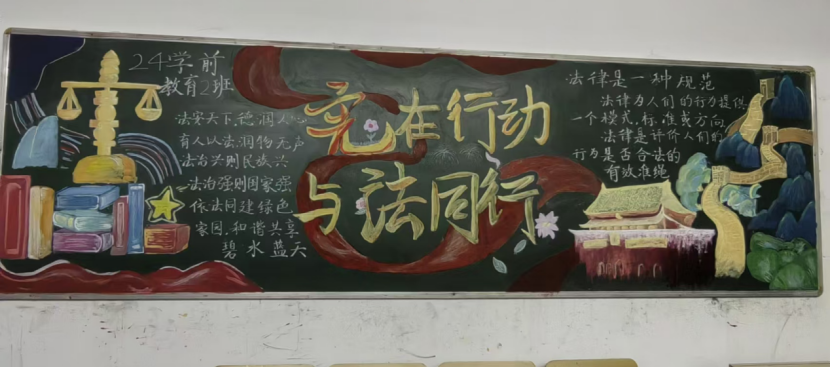 24学前
教育2班
法安天下,德润人心
有人以法,润物无声
法治兴则民族兴
法治强则国家强
依法同建绿色
家园,和谐共享
碧水蓝天
宪在行动
与法同行
法律是一种规范
法律为人们的行为提供
一个模式,标准或方向
法律是评价人们的
行为是否合法的
有效准绳